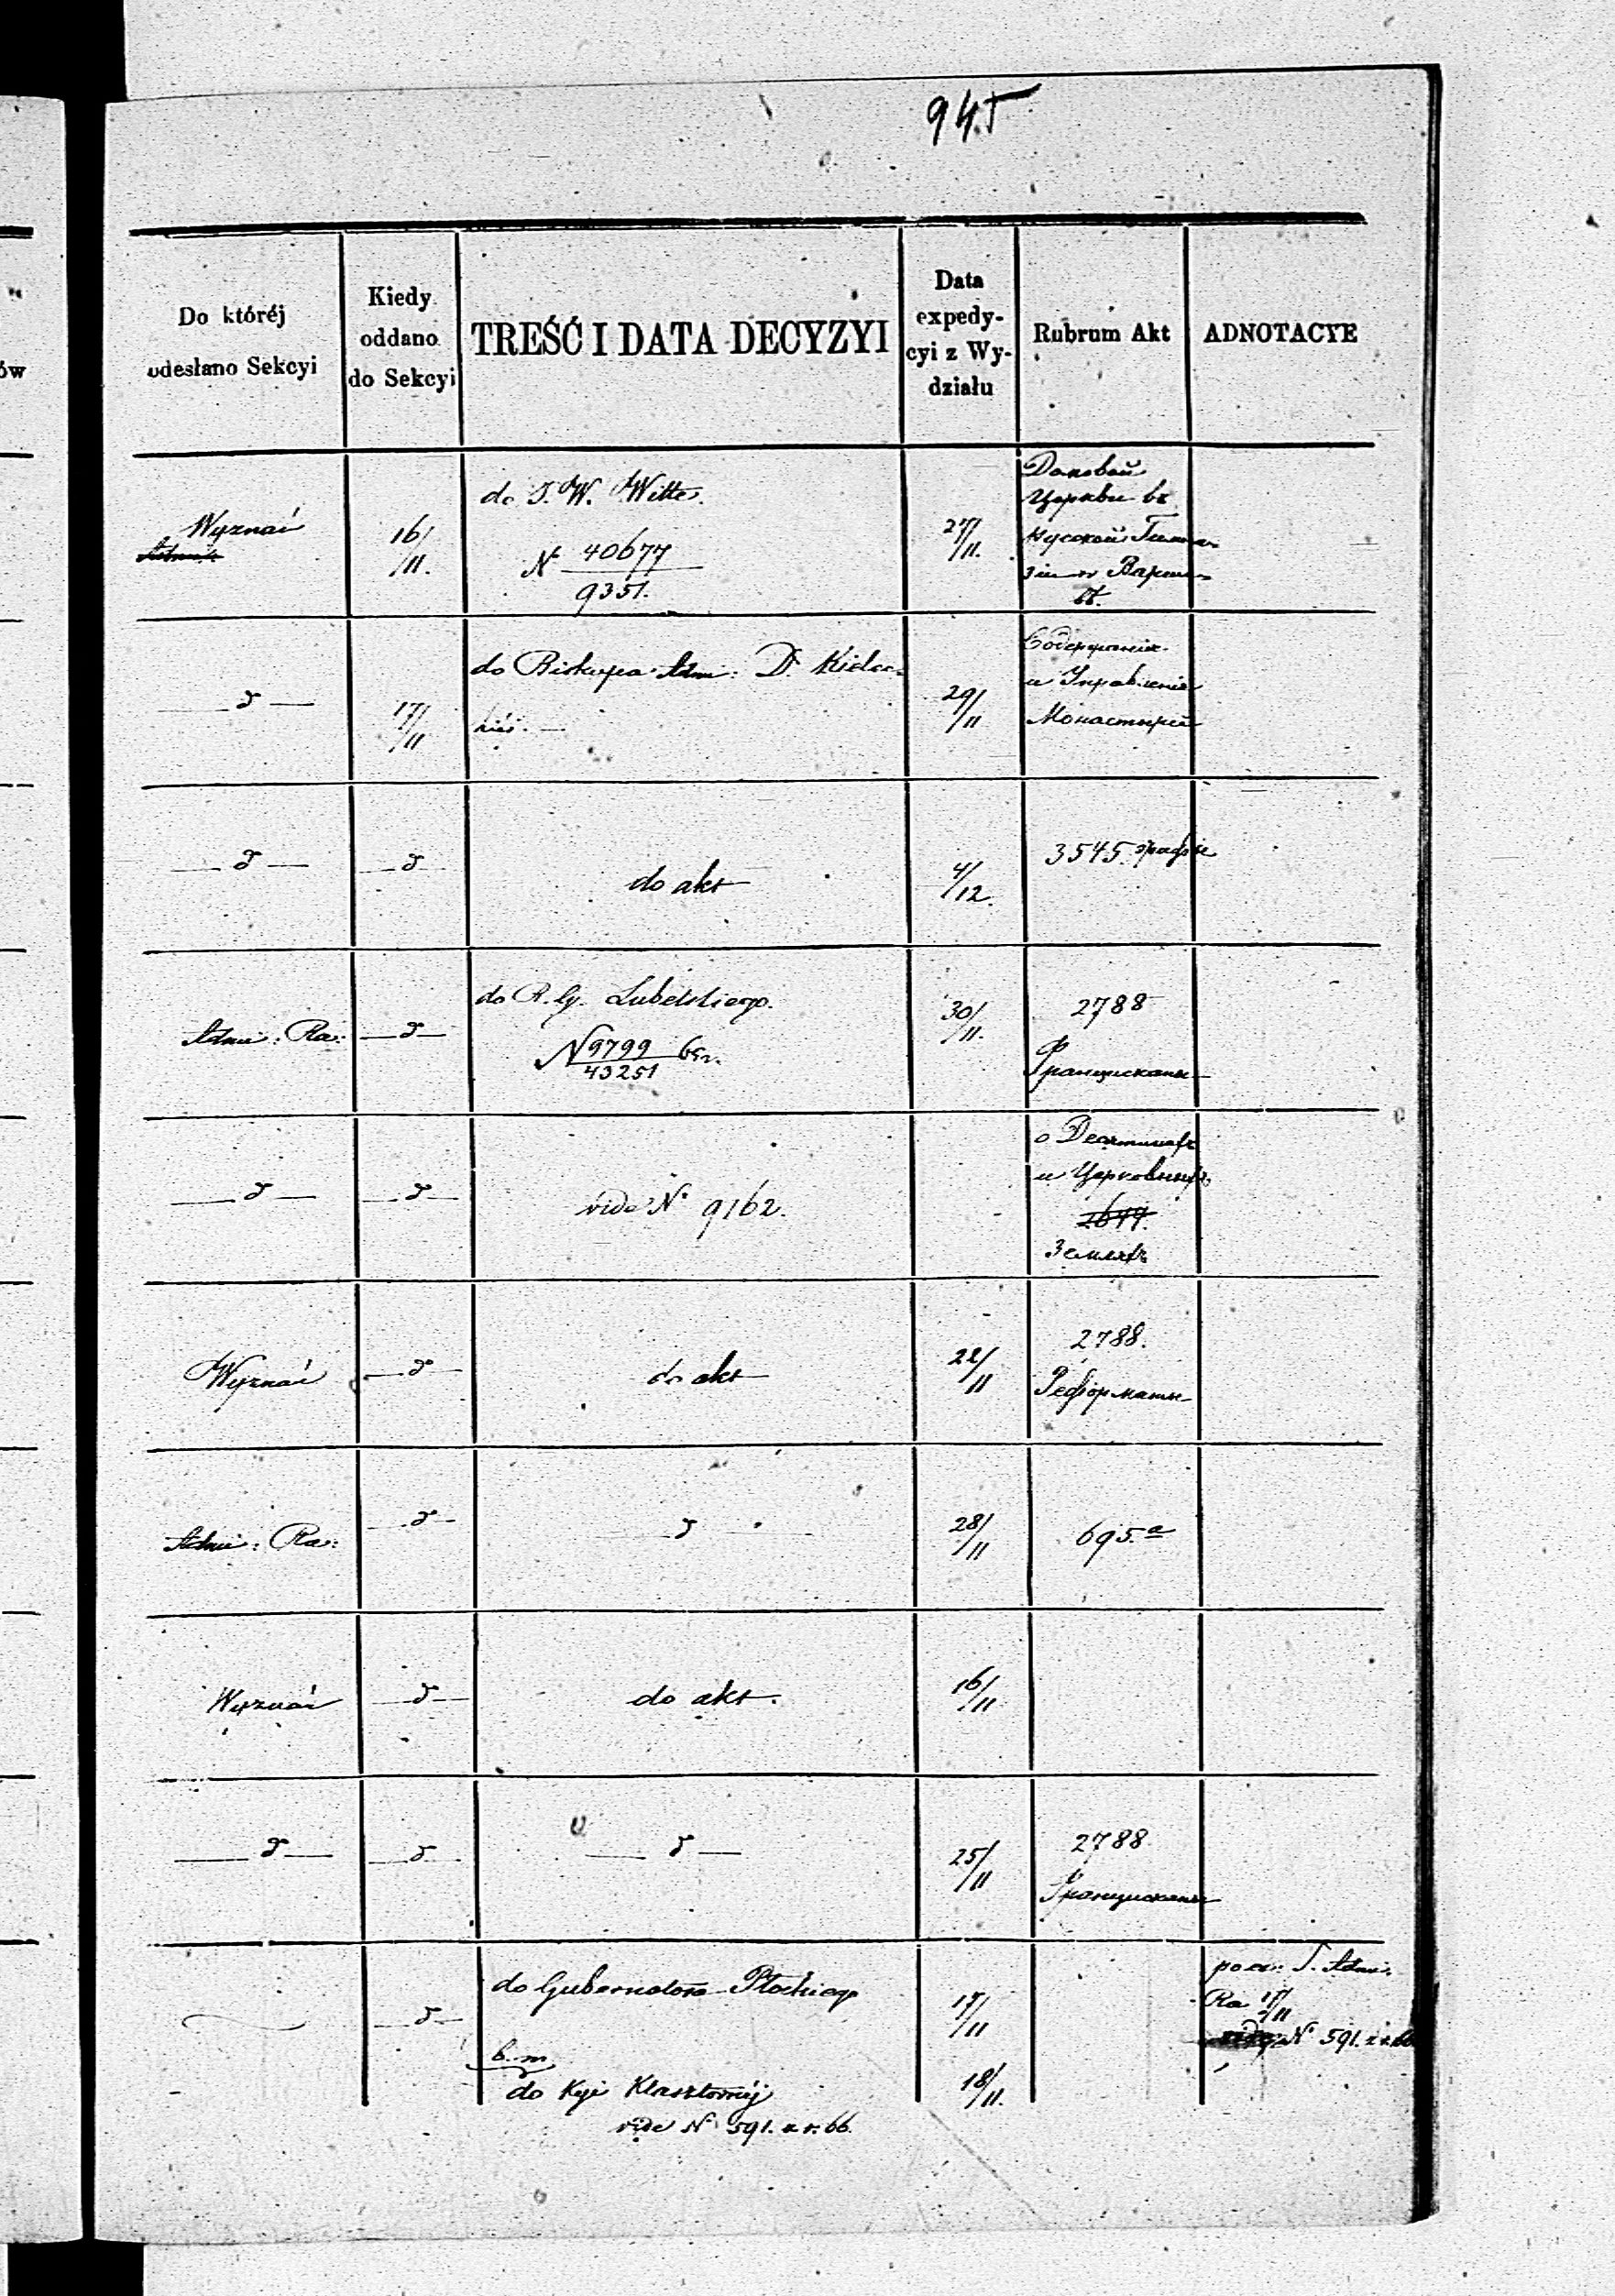 945
ów
Do któréj
odesłano Sekcyi
Kiedy
oddano
do Sekcyi
TREŚĆ I DATA DECYZYI
Data
expedy-
cyi z Wy-
działu
Rubrum Akt
ADNOTACYE
Wyznań
16/11.
do J. W. Witte.
N 40677
9351.
27/11.
Церкви въ
Русской Гимна-
зіи в Варша-
вѣ.
— d —
17/11
do Biskupa Adm: D. Kielec-
kiéj. —
29/11
Содержаніе
и Управленіе
Монастырей
— d —
— d
do akt
4/12.
3545.
Admi: Ra:
— d —
do R. G. Lubelskiego.
N 9799
43251
30/11.
2788
Францискане
— d —
— d —
vide N° 9162.
о Десятинахъ
и Церковныхъ
Земляхъ
Wyznań
— d —
do akt
22/11
2788.
Реформаты
Admi: Ra:
— d —
— d —
28/11
695.a
Wyznań
— d —
do akt.
16/11
— d —
— d
— d —
25/11
2788
Францискане
— d —
do Gubernatora Płockiego
17/11
S. Admi.
Ra 17/11
N° 591. z r. 66
b. m
do Kyi Klasztornéj
18/11.
vide N 591. z r. 66.